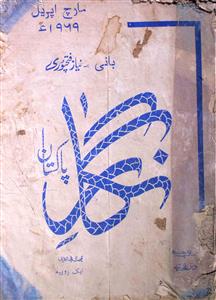 مارچ اپریل
۱۹۶۹ء
بانی۔ نیاز فتحپوری
نگار
پاکستان
ایک روپیہ